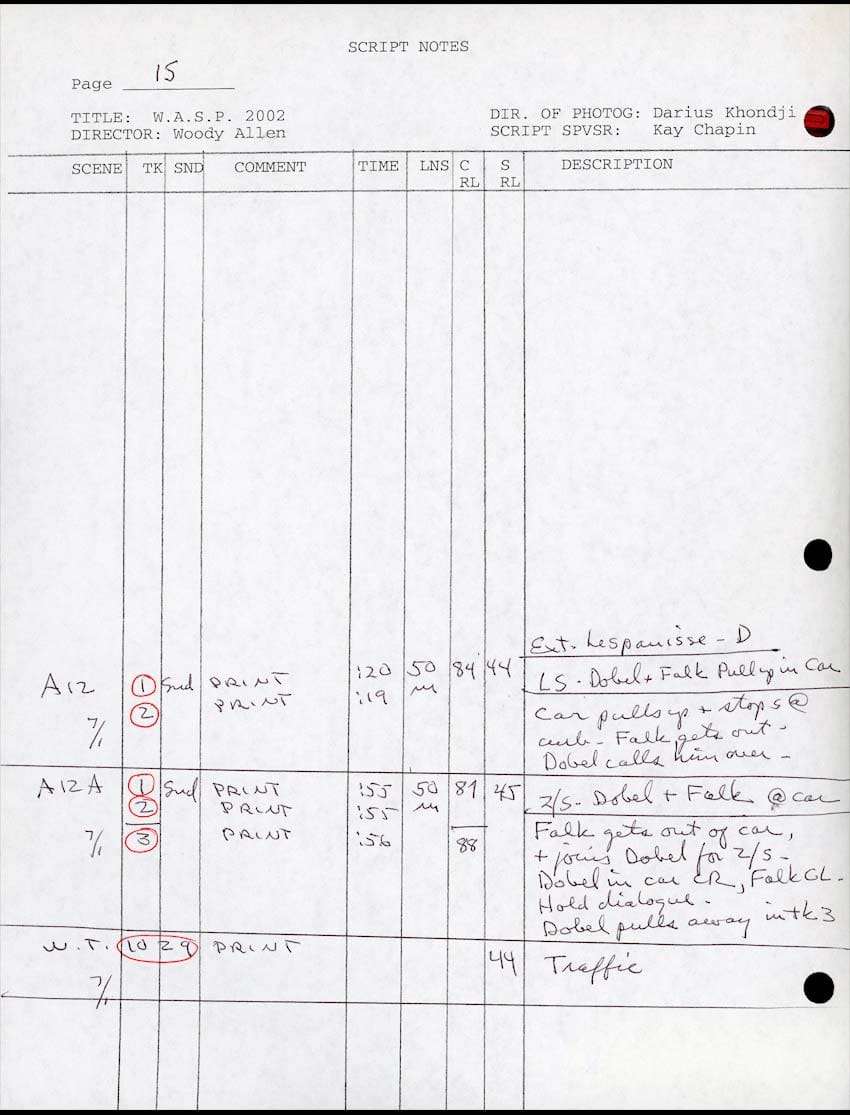 SCRIPT NOTES
Page 15
TITLE: W.A.S.P. 2002
DIRECTOR: Woody Allen
DIR. OF PHOTOG: Darius Khondji
SCRIPT SPVSR: Kay Chapin
SCENE TK SND COMMENT TIME LNS C RL S RL DESCRIPTION
Ext. Lespanisse - D
A12 1 Snd PRINT :20 50 84 44 LS - Dobel + Falk Pull up in Car
2 PRINT :19 m
7/1
Car pulls up + stops @
curb - Falk gets out -
Dobel calls him over -
A12A 1 Snd PRINT :55 50 81 45 2/S - Dobel + Falk @ car
2 PRINT :55 m
7/1 3 PRINT :56 88
Falk gets out of car,
+ joins Dobel for 2/S -
Dobel in car CR, Falk CL -
Hold dialogue -
Dobel pulls away in tk 3
W.T. 1029 PRINT 44 Traffic
7/1